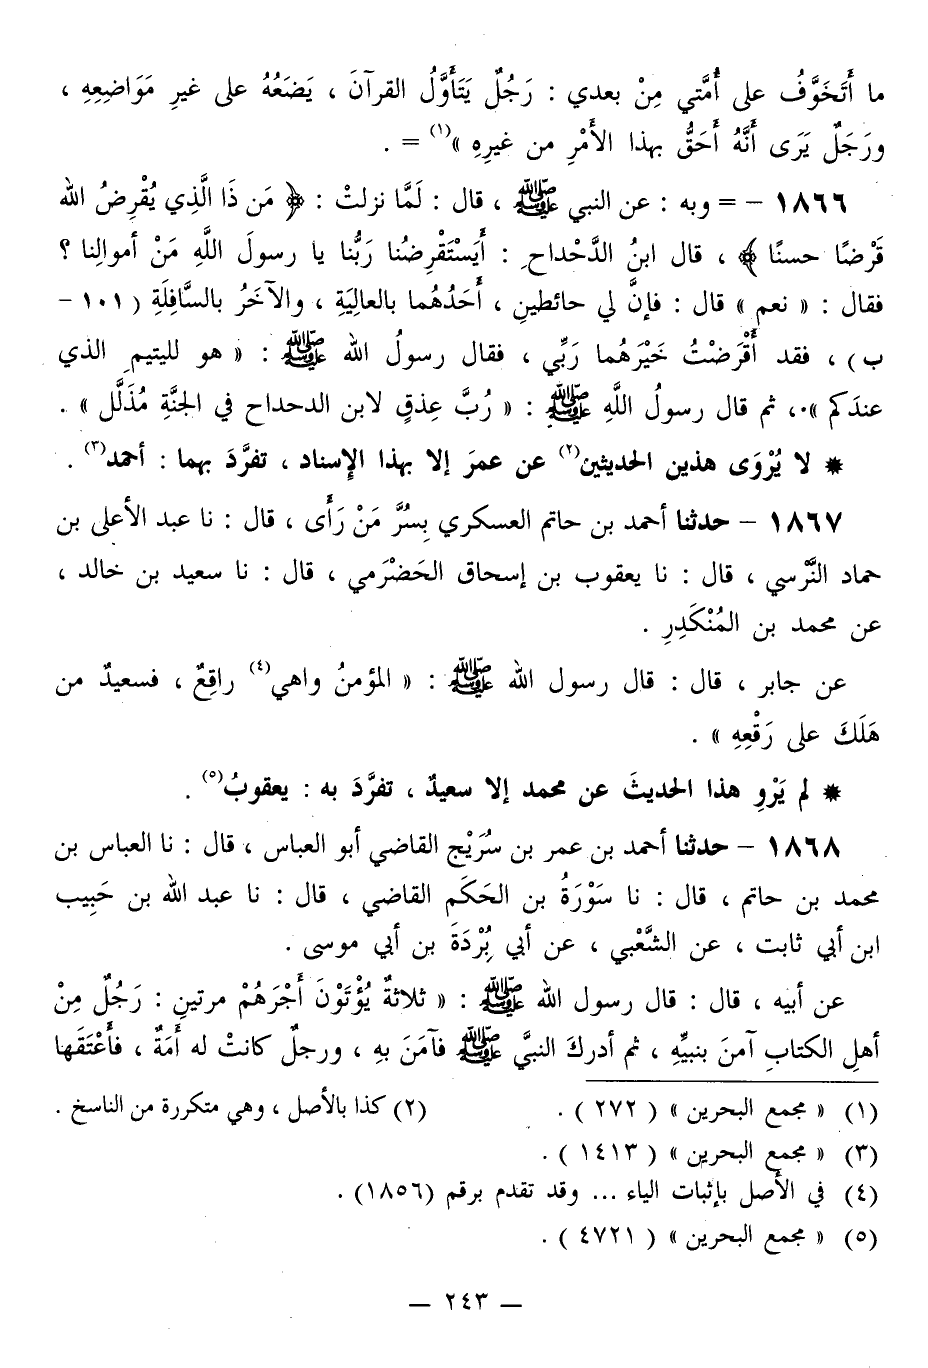 ما أَتَخَوَّفُ على أُمَّتي مِنْ بعدي : رَجُلٌ يَتَأَوَّلُ القرآنَ ، يَضَعُهُ على غيرِ مَوَاضِعِهِ ،
ورَجَلٌ يَرَى أَنَّهُ أَحَقُّ بهذا الأَمْرِ من غيرِهِ »(١) = .
١٨٦٦ - = وبه : عن النبي ﷺ ، قال : لَمَّا نزلتْ : ﴿ مَن ذَا الَّذِي يُقْرِضُ الله
قَرْضًا حسنًا ﴾ ، قال ابنُ الدَّحْداحِ : أَيَسْتَقْرِضُنا رَبُّنا يا رسولَ اللَّهِ مَنْ أموالِنا ؟
فقال : « نعم » قال : فإنَّ لي حائطينِ ، أَحَدُهُما بالعالِيَةِ ، والآخَرُ بالسَّافِلَةِ ( ١٠١ -
ب ) ، فقد أَقْرَضْتُ خَيْرَهُما رَبِّي ، فقال رسولُ الله ﷺ : « هو لليتيمِ الذي
عندَكم »٠، ثم قال رسولُ اللَّهِ ﷺ : « رُبَّ عِذقٍ لابن الدحداح في الجنَّةِ مُذَلَّل » .
* لا يُرْوَى هذين الحديثين(٢) عن عمرَ إلا بهذا الإِسناد ، تفرَّدَ بهما : أحمد(٣) .
١٨٦٧ - حدثنا أحمد بن حاتم العسكري بِسُرَّ مَنْ رَأَى ، قال : نا عبد الأعلى بن
حماد النَّرْسي ، قال : نا يعقوب بن إسحاق الحَضْرَمي ، قال : نا سعيد بن خالد ،
عن محمد بن المُنْكَدِرِ .
عن جابر ، قال : قال رسول الله ﷺ : « المؤمنُ واهي(٤) راقِعٌ ، فسعيدٌ من
هَلَكَ على رَقْعِهِ » .
* لم يَرْوِ هذا الحديثَ عن محمد إلا سعيدٌ ، تفرَّدَ به : يعقوبُ(٥) .
١٨٦٨ - حدثنا أحمد بن عمر بن سُرَيْج القاضي أبو العباس ، قال : نا العباس بن
محمد بن حاتم ، قال : نا سَوْرَةُ بن الحَكَم القاضي ، قال : نا عبد الله بن حَبِيب
ابن أبي ثابت ، عن الشَّعْبي ، عن أبي بُرْدَةَ بن أبي موسى .
عن أبيه ، قال : قال رسول الله ﷺ : « ثلاثةٌ يُؤْتَوْنَ أَجْرَهُمْ مرتينِ : رَجُلٌ مِنْ
أهلِ الكتابِ آمنَ بنبيِّهِ ، ثم أدركَ النبيَّ ﷺ فآمَنَ بهِ ، ورجلٌ كانتْ له أَمَةٌ ، فأَعْتَقَها
(١) « مجمع البحرين » ( ٢٧٢ ) . (٢) كذا بالأصل ، وهي متكررة من الناسخ .
(٣) « مجمع البحرين » ( ١٤١٣ ) .
(٤) في الأصل بإثبات الياء ... وقد تقدم برقم (١٨٥٦) .
(٥) « مجمع البحرين » ( ٤٧٢١ ) .
— ٢٤٣ —